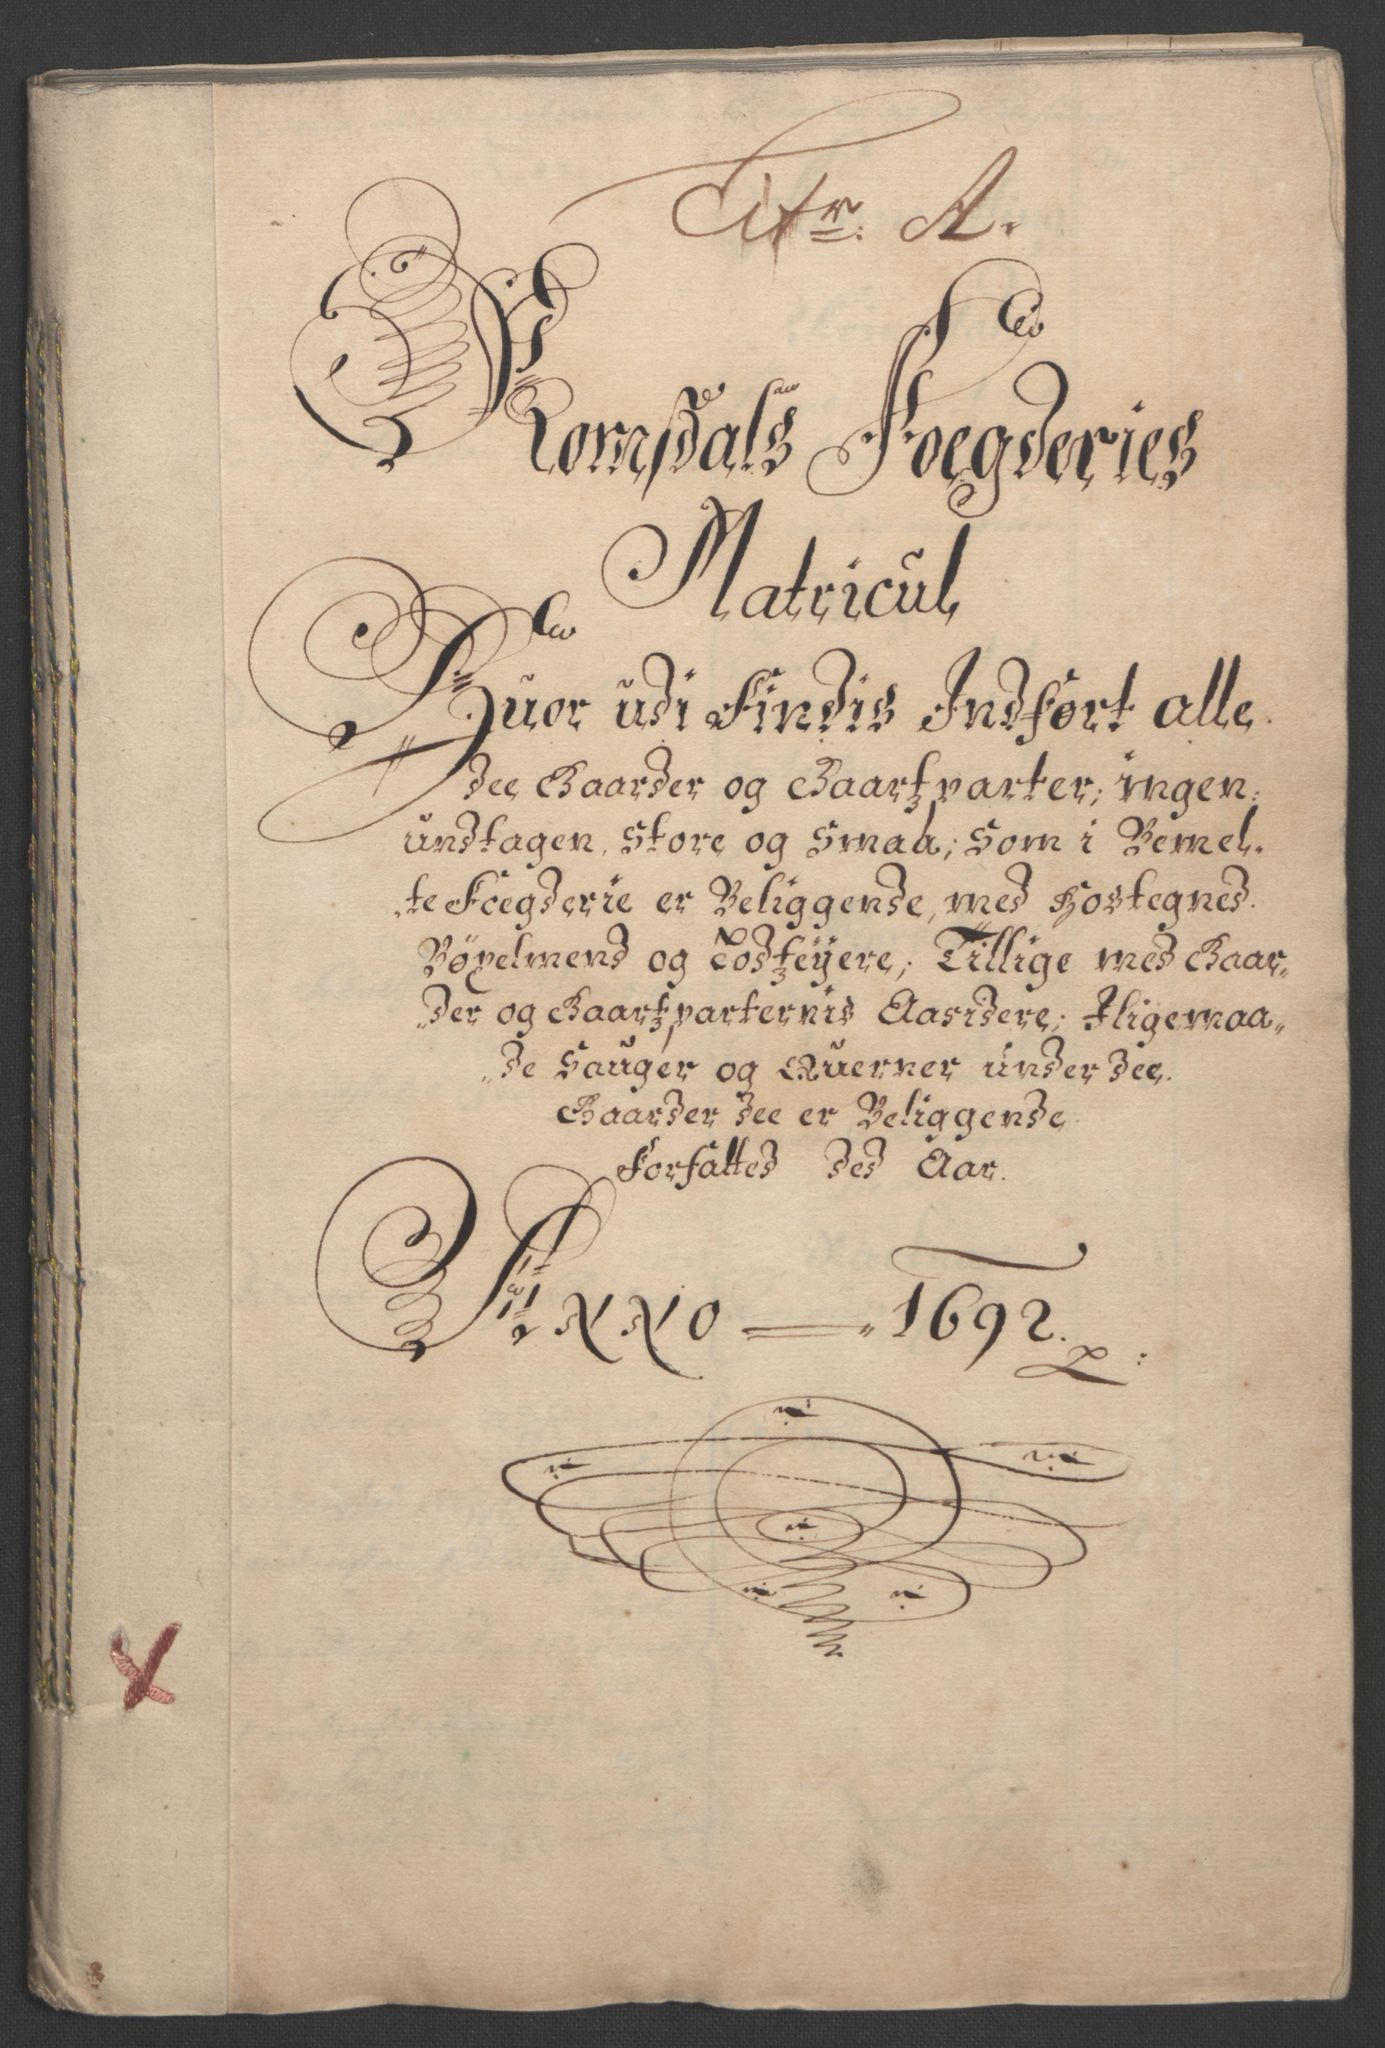 Litr: A.
Romsdals Foegderies
Matricul
Huor udi Findis Indført alle
dee Gaarder og Gaartzparter; ingen
undtagen, Store og Smaa; Som i Bemel-
te Foegderie er Beliggende, med Hostegned
Böxelmend og Godtzeyere; Tillige med Gaar-
der og Gaartzparternis Aasidere; Iligemaa-
de Sauger og Querner under dee
Gaarder dee er Beliggende
Forfatted ded Aar.
Anno — 1692.